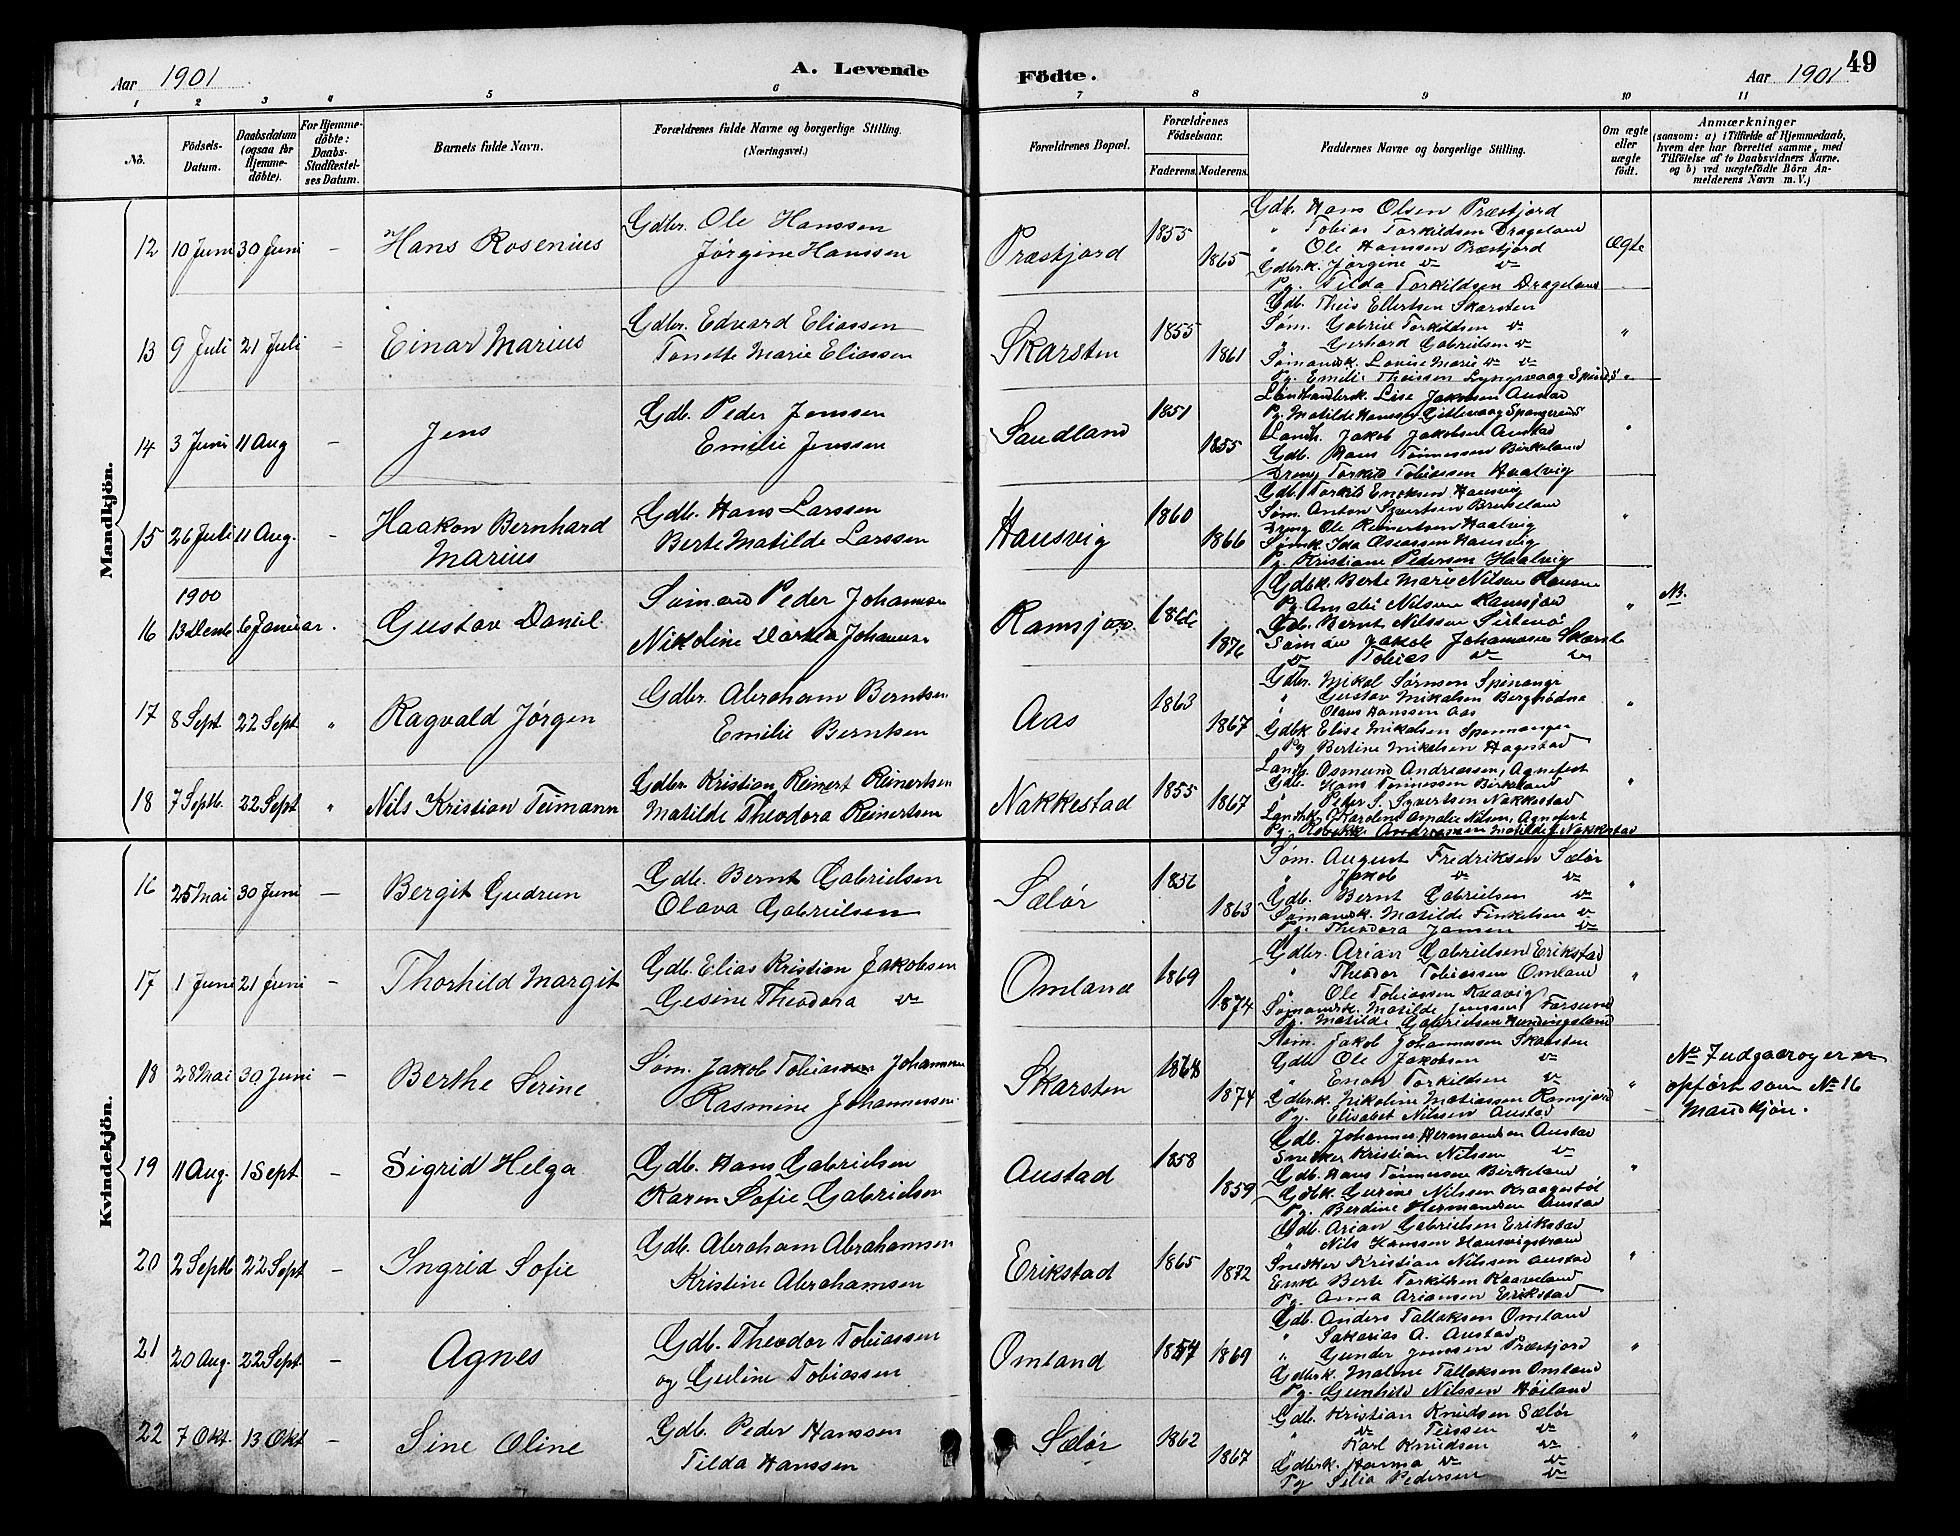 Aar 1901
A. Levende
Födte.
Aar 1901
49
1 2 3 4 5 6 7 8 9 10 11
Nö.
Födsels-Datum.
Daabsdatum (ogsaa for Hjemme-döbte).
For Hjemme-döbte: Daabs-Stadfæstel-ses Datum.
Barnets fulde Navn.
Forældrenes fulde Navne og borgerlige Stilling. (Næringsvei.)
Forældrenes Bopæl.
Forældrenes Födselsaar.
Faderens. Moderens.
Faddernes Navne og borgerlige Stilling.
Om ægte eller uægte födt.
Anmærkninger
(saasom: a) i Tilfælde af Hjemmedaab,
hvem der har forrettet samme, med
Tilföielse af to Daabsvidners Navne.
og b) ved uægtefödte Börn An-
melderens Navn m. V.)
Mandkjön.
12 10 Juni 30 Juni — Hans Rosenius
Gdbr. Ole Hanssen
Jørgine Hanssen
Præstjord 1855 1865
Gdb. Hans Olsen Præstjord
" Tobias Torkildsen Drageland
" Ole Hanssen Præstjord
Gdbrk. Jørgine
Pg. Tilda Torkildsen Drageland
Ægte
13 9 Juli 21 Juli — Einar Marius
Gdbr. Edvard Eliassen
Tonette Marie Eliassen
Skarsten 1855 1861
Gdb. Theis Ellertsen Skarsten
Søm. Gabriel Torkildsen
" Gerhard Gabrielsen
Sømandsk. Louise Marie
Pg. Emilie Theissen Lyngsvaag
"
14 3 Juni 11 Aug — Jens
Gdb. Peder Jenssen
Emilie Jenssen
Sandland 1851 1855
Lise Jakobsen Austad
Pg. Matilde Hansen
Landh. Jakob Jakobsen Austad
Gdb. Hans Tönnessen Birkeland
Dreng Torkild Tobiassen Haalvig
"
15 26 Juli 11 Aug. — Haakon Bernhard Marius
Gdb. Hans Larssen
Berte Matilde Larssen
Hausvig 1860 1866
Gdb. Torkild Eriksen Hausvig
Søm. Anton Syvertsen
Dreng Ole Reinertsen Haalvig
Sømk. Ida Hausvig
Pg. Kristiane Pedersen Haalvig
"
1900
16 13 Decbr 6 Januar. Gustav Daniel
Sømand Peder Johannesen
Nikoline Dorthea Johannesen
Ramsjord 1876
Gdbk. Berte Marie Nilsen
Pg. Amalie Nilsen Ramsjord
Gdb. Bernt Nilssen
Sømand Jakob Johannesen
Tobias
"
NB.
17 8 Sept 22 Sept " Ragvald Jörgen
Gdbr. Abraham Berntsen
Emilie Berntsen
Aas 1863 1867
Gdbr. Mikal Sørnsen
" Gustav Mikalsen
" Olaus Hanssen Aas
Gdbk Elise Mikelsen
Pg Bertine Mikelsen Hagestad
"
18 7 Septb. 22 Sept " Nils Kristian Teimann
Gdbr. Kristian Reinert Reinertsen
Matilde Theodora Reinertsen
Nakkestad 1855 1867
Landh. Osmund Andreassen, Agnefest
Gdb. Hans Tönnessen Birkeland
" Peder S. Syvertsen Nakkestad
Karoline Amalie Nilsen, Agnefest
Pg. Andreassen Nakkestad
"
Kvindekjön.
16 25 Mai 30 Juni — Bergit Gudrun
Gdb. Bernt Gabrielsen
Olava Gabrielsen
Sælør 1856 1863
Søm. August Fredriksen Sælør
" Jakob
Gdb. Bernt Gabrielsen
Sømandsk. Matilde Finkelsen
Pg. Theodora Jansen
"
17 1 Juni 21 Juni — Thorhild Margit
Gdb. Elias Kristian Jakobsen
Gesine Theodora
Omland 1869 1874
Gdbr. Arian Gabrielsen Erikstad
" Theodor Tobiassen Omland
" Ole Tobiassen
Sømandsk. Matilde Jenssen Farsund
Pg. Matilde Gabrielsen
"
18 28 Mai 30 Juni — Berthe Serine
Søm. Jakob Tobiassen Johannesen
Rasmine Johannessen
Skarsten 1868 1874
Søm. Jakob Johannessen Skarsten
Gdb Ole Jakobsen
" Enok Torkildsen
Gdbrk. Nikoline Matiassen Ramsjord
Pg. Elisabet Nilssen Austad
"
No 7 udgaar og er
opført som No 16
Mandkjön.
19 11 Aug. 1 Sept — Sigrid Helga
Gdb. Hans Gabrielsen
Karen Sofie Gabrielsen
Austad 1858 1859
Gdb. Johannes Hermandsen Austad
Snedker Kristian Nilssen
Gdb. Hans Tönnessen Birkeland
Gdbk. Gurine Nilssen
Pg. Berdine Hermandsen Austad
"
20 2 Septb 22 Sept — Ingrid Sofie
Gdb. Abraham Abrahamsen
Kristine Abrahamsen
Erikstad 1865 1872
Gdb. Arian Gabrielsen Erikstad
" Nils Hanssen Hausvigstrand
Snedker Kristian Nilssen Austad
Enke Berte Torkildsen
Pg. Anna Ariansen Erikstad
"
21 20 Aug. 22 Sept — Agnes
Gdb. Theodor Tobiassen
og Guline Tobiassen
Omland 1857 1869
Gdb. Anders Tallaksen Omland
" Sakarias A. Austad
" Gunder Jenssen Præstjord
Gdbrk. Malene Tallaksen Omland
Pg. Gunhild Nilssen Höiland
"
22 7 Okt. 13 Okt — Sine Oline
Gdb. Peder Hanssen
Tilda Hanssen
Sælør 1862 1867
Gdb. Kristian Knudsen Sælør
" Teissen
" Karl Knudsen
Gdbrk. Hanna
Pg Silia Pedersen
"